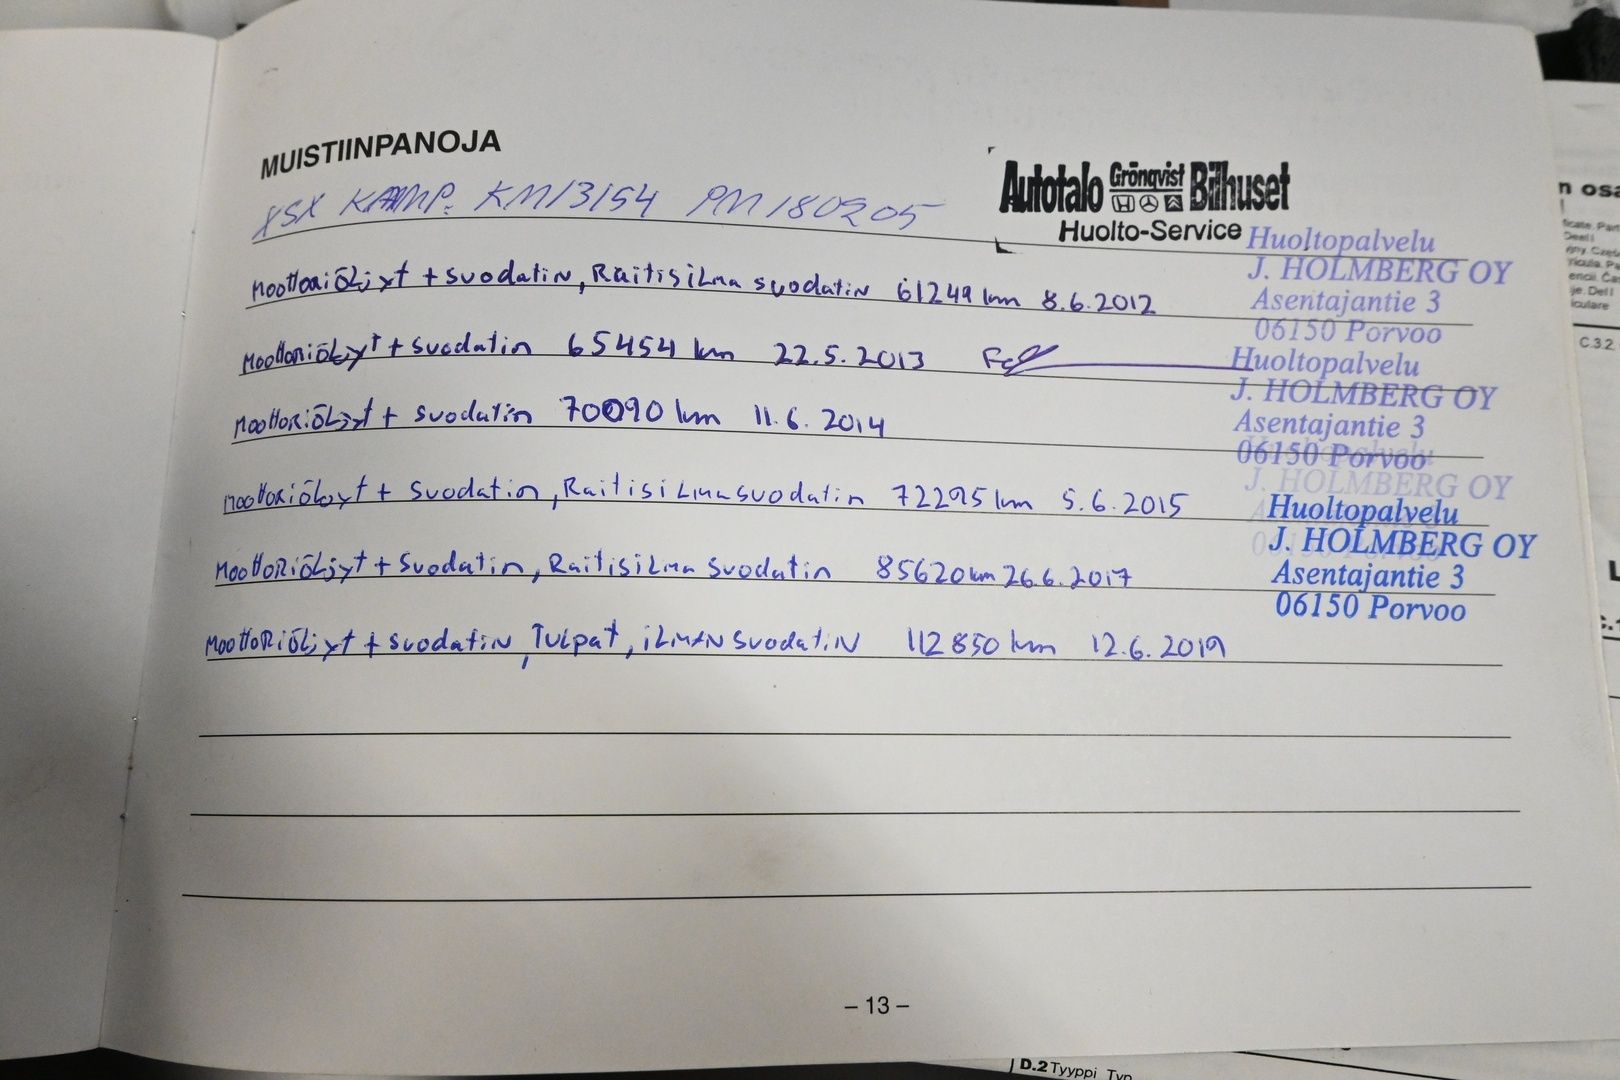 MUISTIINPANOJA
XSX KAMP. KM 13154 PM 180205
Autotalo Grönqvist Bilhuset
Huolto-Service
Huoltopalvelu
J. HOLMBERG OY
Asentajantie 3
06150 Porvoo
Moottoriöljyt + suodatin, Raitisilma suodatin 61249 km 8.6.2012
Huoltopalvelu
J. HOLMBERG OY
Asentajantie 3
06150 Porvoo
Moottoriöljyt + suodatin 65454 km 22.5.2013
Moottoriöljyt + suodatin 70090 km 11.6.2014
J. HOLMBERG OY
Moottoriöljyt + suodatin, Raitisilmasuodatin 72295 km 5.6.2015
Huoltopalvelu
J. HOLMBERG OY
Asentajantie 3
06150 Porvoo
Moottoriöljyt + Suodatin, Raitisilma suodatin 85620 km 26.6.2017
Moottoriöljyt + suodatin, Tulpat, ilman suodatin 112850 km 12.6.2019
– 13 –
n osa
C.3.2
D.2 Tyyppi Typ